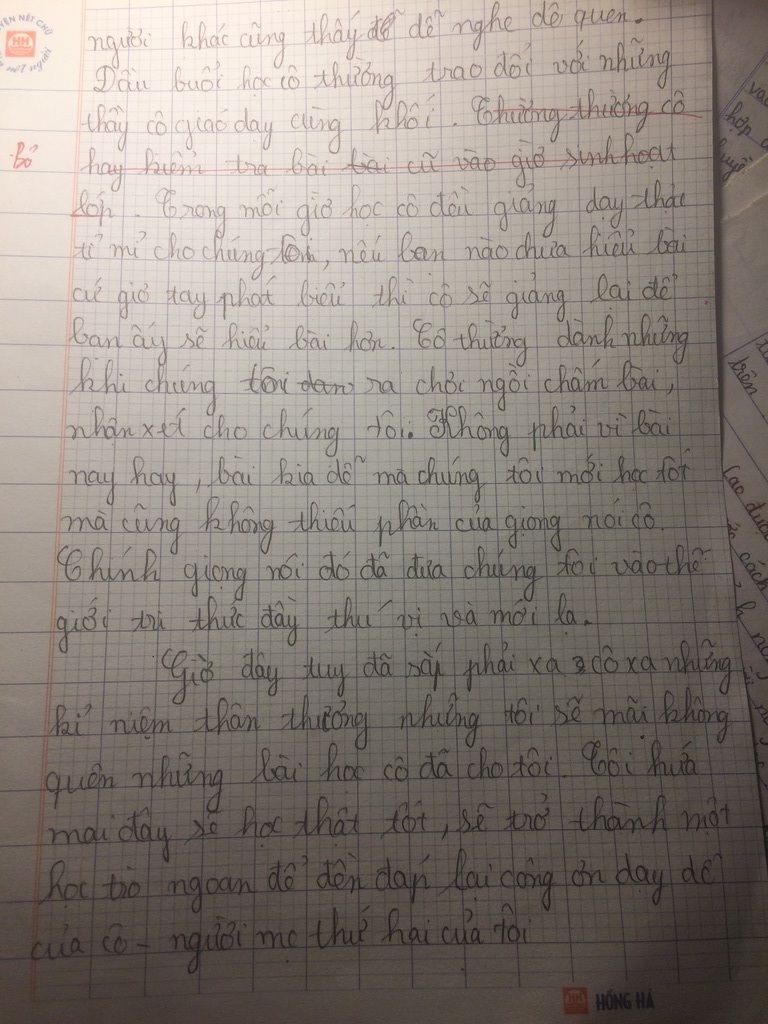 người khác cũng thấy dễ dễ nghe dê quen.
Đầu buổi học cô thường trao đổi với những
thầy cô giáo dạy cùng khối. Thường thường cô
Bỏ
hay kiểm tra bài bài cũ vào giờ sinh hoạt
lớp. Trong mỗi giờ học cô đều giảng dạy thật
tỉ mỉ cho chúng tôi, nếu bạn nào chưa hiểu bài
cứ giơ tay phát biểu thì cô sẽ giảng lại để
bạn ấy sẽ hiểu bài hơn. Cô thường dành những
khi chúng tôi đan ra chơi ngồi chấm bài,
nhận xét cho chúng tôi. Không phải vì bài
nay hay, bài kia dễ mà chúng tôi mới học tốt
mà cũng không thiếu phần của giọng nói cô.
Chính giọng nói đó đã đưa chúng tôi vào thế
giới tri thức đầy thú vị và mới lạ.
Giờ đây tuy đã sắp phải xa cô xa những
kỉ niệm thân thương nhưng tôi sẽ mãi không
quên những bài học cô đã cho tôi. Tôi hứa
mai đây sẽ học thật tốt, sẽ trở thành một
học trò ngoan để đền đáp lại công ơn dạy dỗ
của cô - người mẹ thứ hai của tôi
HH HỒNG HÀ